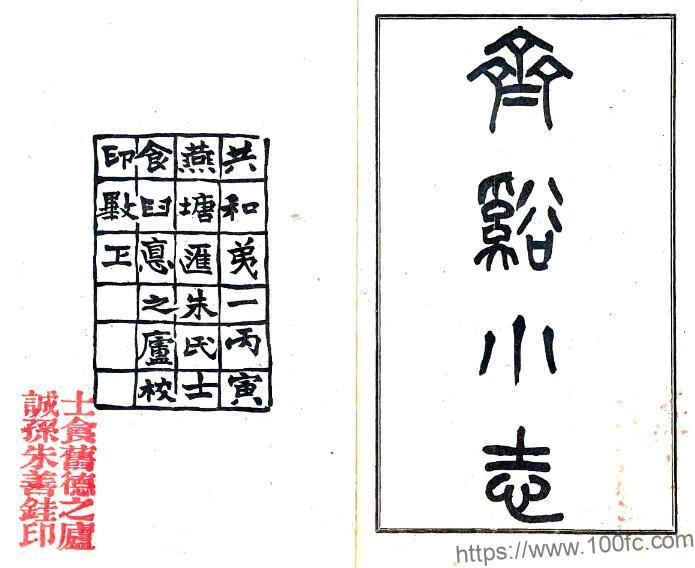 齊谿小志
共和弟一丙寅
燕塘滙朱氏士
食臼悳之廬校
印
士食舊德之廬
誠孫朱善銈印
https://www.100fc.com